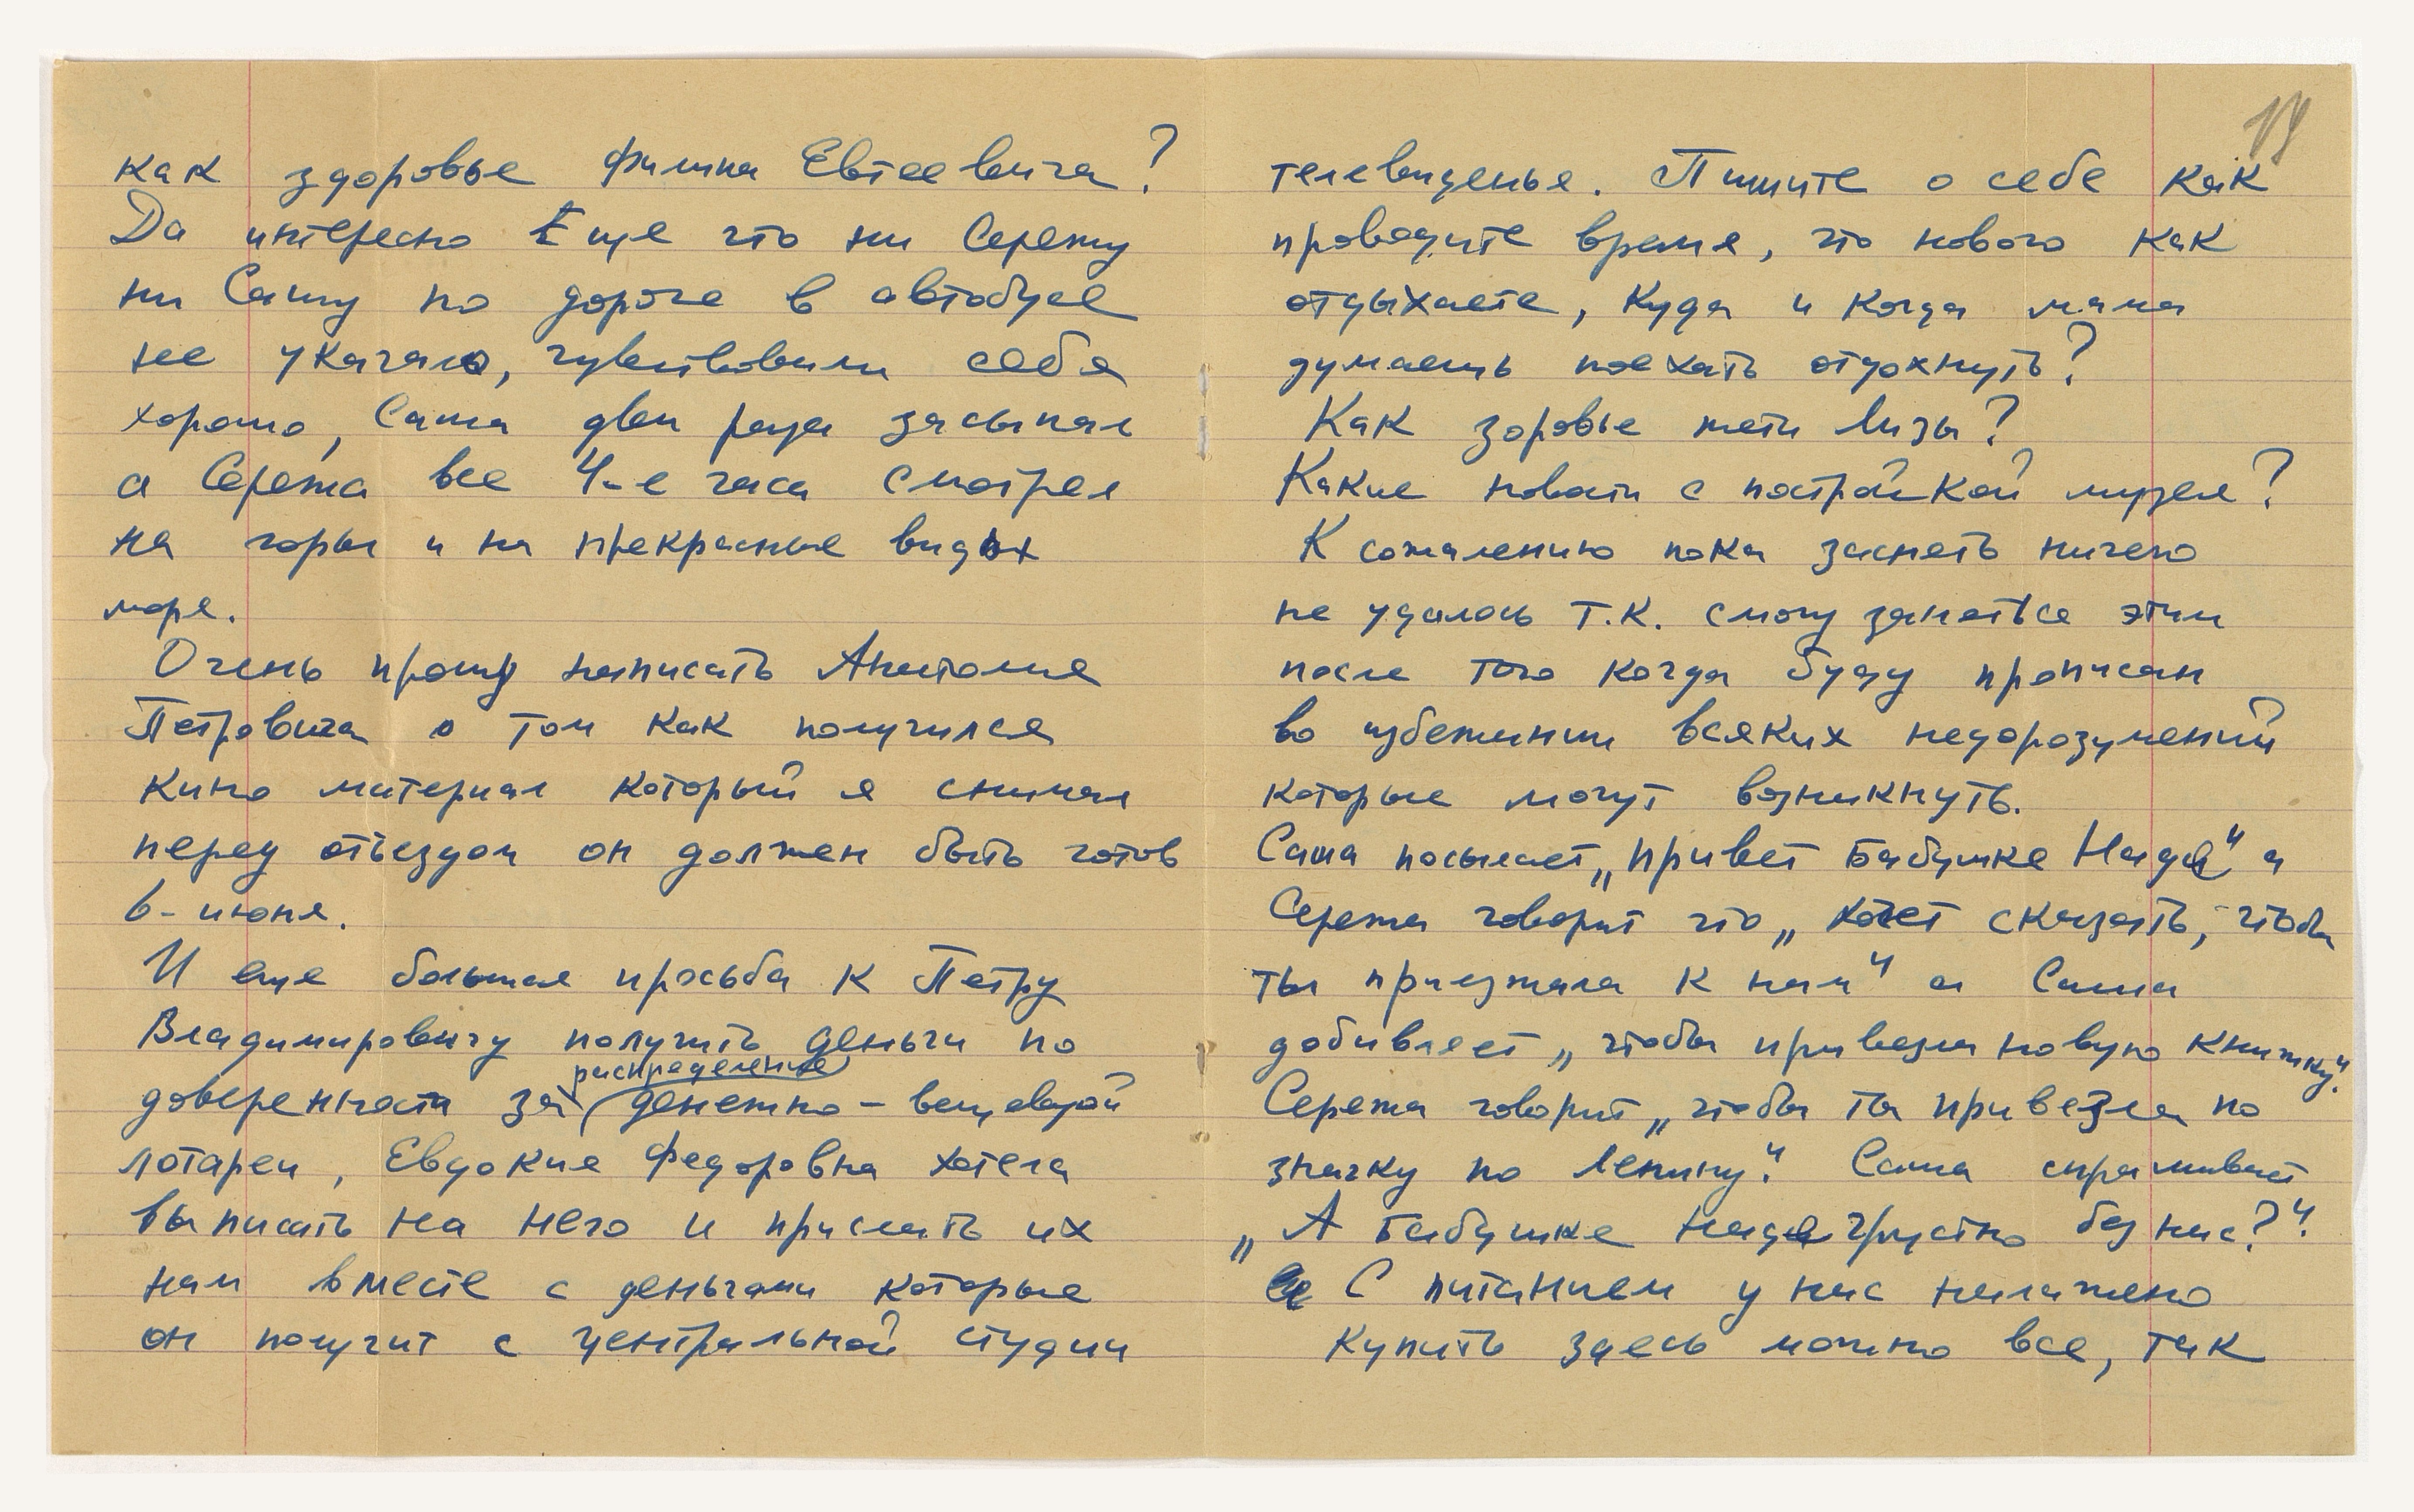 19
как здоровье Филипа Евтеевича?
Да интересно Еще что ни Сережу
ни Сашу по дороге в автобусе
не укачало, чувствовали себя
хорошо, Саша два раза засыпал
а Сережа все 4-е часа смотрел
на горы и на прекрасные виды
моря.
Очень прошу написать Анатолия
Петровича о том как получился
кино материал который я снимал
перед отъездом он должен быть готов
6-июня.
И еще большая просьба к Петру
Владимировичу получить деньги по
доверенности за распределение денежно-вещевой
лотареи, Евдокия Федоровна хотела
выписать на него и прислать их
нам вместе с деньгами которые
он получит с центральной студии
телевиденья. Пишите о себе как
проводите время, что нового как
отдыхаете, куда и когда мама
думаешь поехать отдохнуть?
Как зоровье тети Лизы?
Какие новости с постройкой музея?
К сожалению пока заснять ничего
не удалось т.к. смогу занятьсе этим
после того когда буду прописан
во избежании всяких недоразумений
которые могут возникнуть.
Саша посылает „привет Бабушке Наде" а
Сережа говорит что „хочет сказать, чтобы
ты приезжала к нам" а Саша
добавляет „чтобы привезла новую книжку".
Сережа говорит „чтобы ты привезла по
значку по Ленину". Саша спрашивает
„А Бабушке Наде грустно без нас?".
С питанием у нас налажено
купить здесь можно все, так